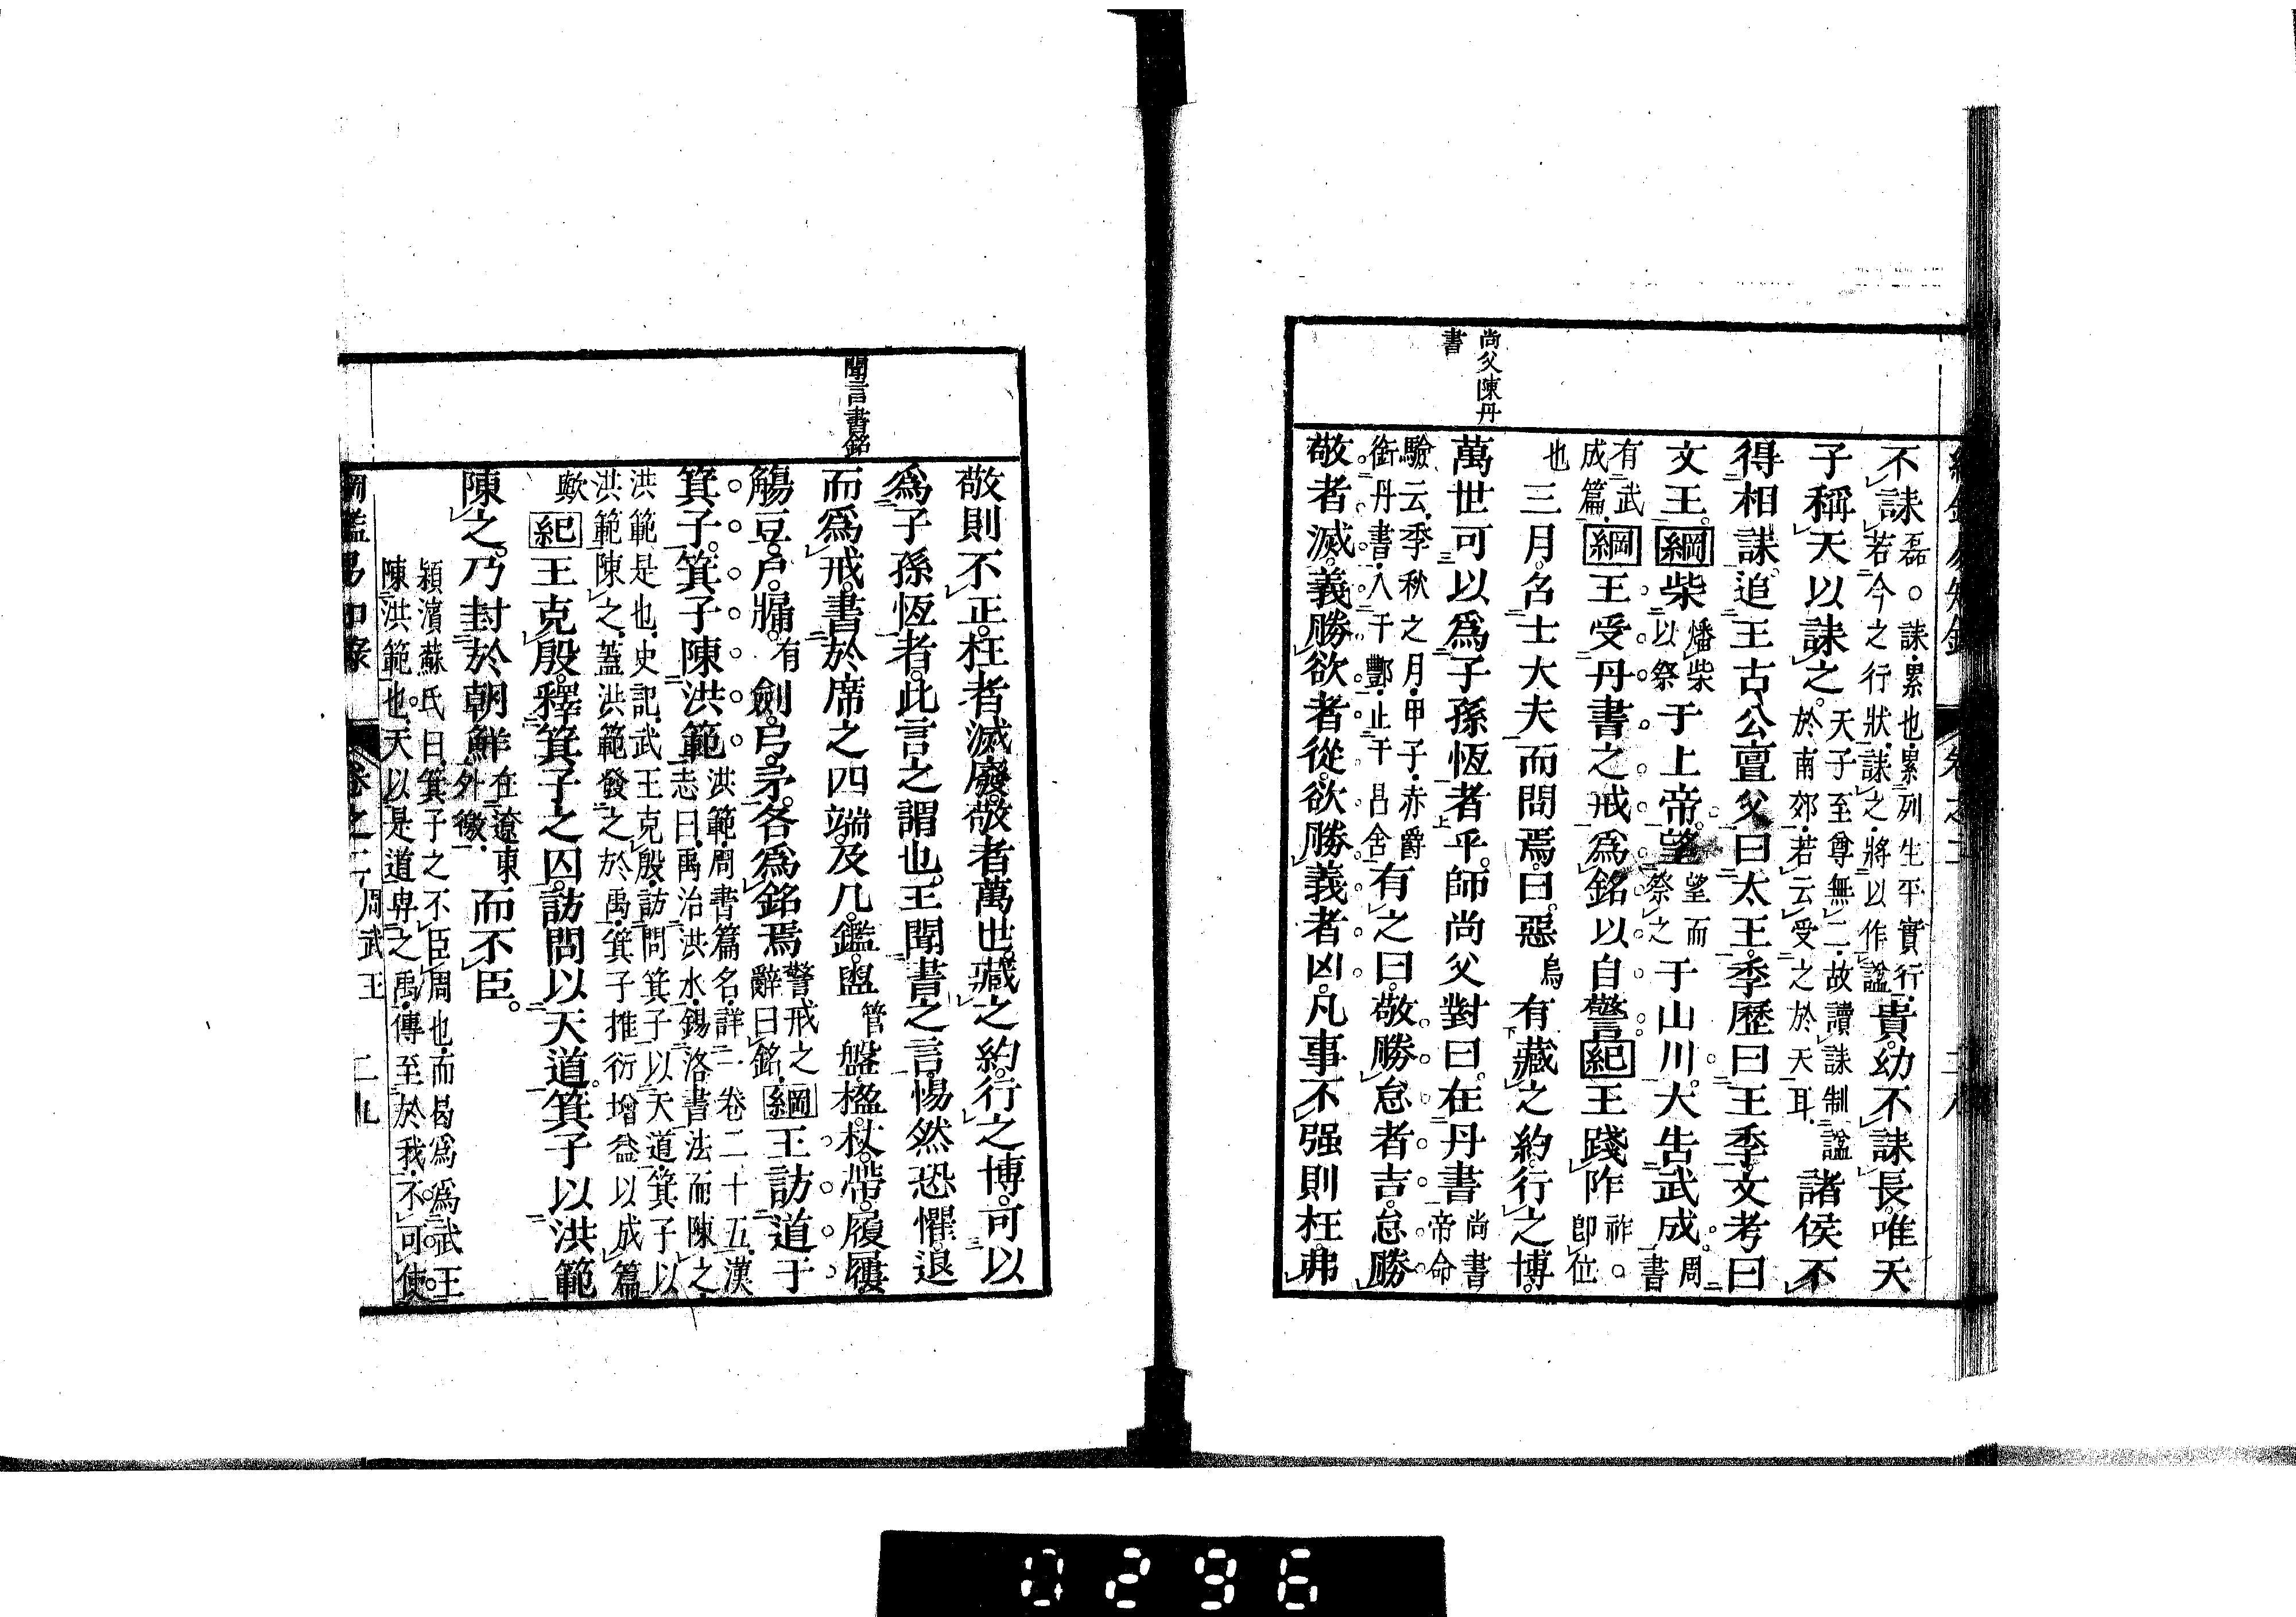 尚父陳丹
書
不誄磊○誄累也累列生平實行
若今之行狀誄之將以作諡貴幼不誄長唯天
子稱天以誄之天子至尊無二故讀誄制諡
於南郊若云受之於天耳諸侯不
得相誄追王古公亶父曰太王季歷曰王季文考曰
文王綱柴燔柴
以祭于上帝望望而
祭之于山川大告武成周
書
有武
成篇
也綱王受丹書之戒爲銘以自警紀王踐阼祚○
卽位
三月名士大夫而問焉曰惡烏有藏之約行之博
萬世可以爲子孫恆者乎師尚父對曰在丹書尚書
帝命
驗云季秋之月甲子赤爵
銜丹書入于酆止于昌舍有之曰敬勝怠者吉怠勝
敬者滅義勝欲者從欲勝義者凶凡事不强則枉弗
聞言書銘
敬則不正枉者滅廢敬者萬世藏之約行之博可以
爲子孫恆者此言之謂也王聞書之言惕然恐懼退
而爲戒書於席之四端及几鑑盥管盤楹杖帶履屨
觴豆戶牖有劍弓矛各爲銘焉警戒之
辭曰銘綱王訪道于
箕子箕子陳洪範洪範周書篇名詳二卷二十五漢
志曰禹治洪水錫洛書法而陳之
洪範是也史記武王克殷訪問箕子以天道箕子以
洪範陳之蓋洪範發之於禹箕子推衍增益以成篇
歟紀王克殷釋箕子之囚訪問以天道箕子以洪範
陳之乃封於朝鮮在遼東
外徼而不臣
潁濱蘇氏曰箕子之不臣周也而曷爲爲武王
陳洪範也天以是道畀之禹傳至於我不可使
卷之二 周武王 二九
0296